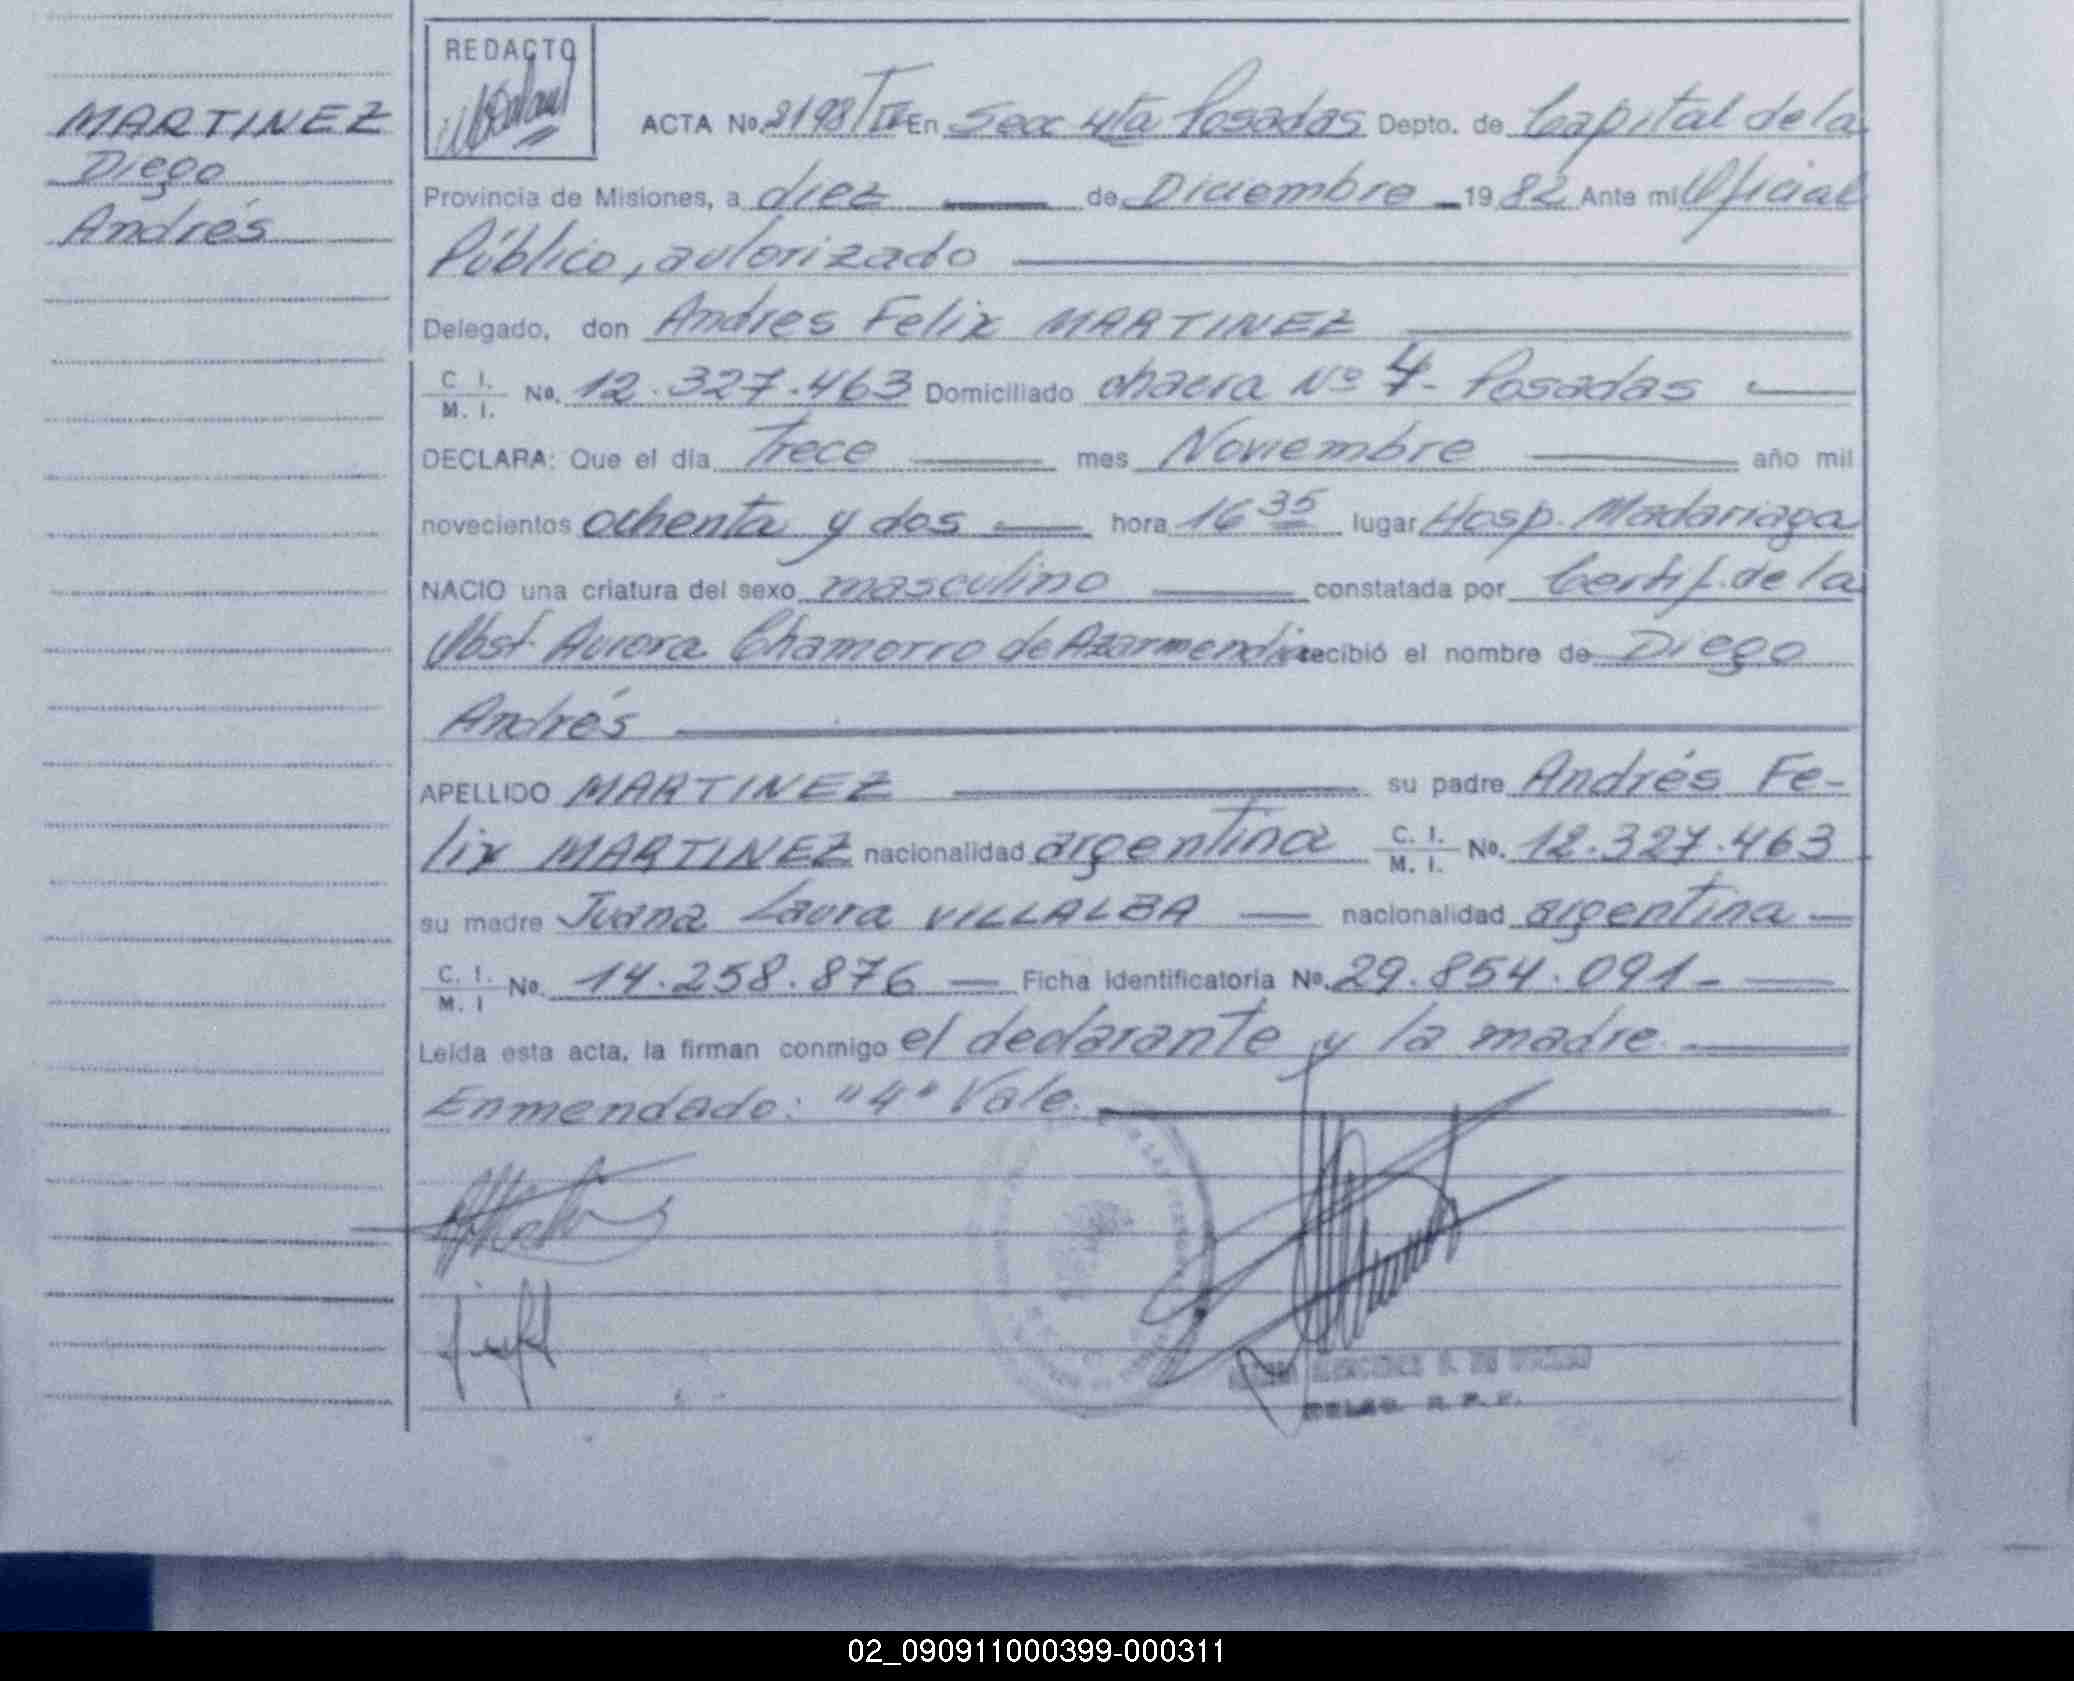 MARTINEZ
Diego
Andrés
REDACTO
ACTA No. 2198/IV En Secc 4ta Posadas Depto. de Capital de la
Provincia de Misiones, a diez de Diciembre 1982 Ante mi Oficial
Público, autorizado
Delegado, don Andres Felix MARTINEZ
C. I. / M. I. No. 12.327.463 Domiciliado chacra Nº 4- Posadas
DECLARA: Que el día Trece mes Noviembre año mil
novecientos ochenta y dos hora 16 35 lugar Hosp. Madariaga
NACIO una criatura del sexo masculino constatada por Certif. de la
Obst. Aurora Chamorro de Azarmendia recibió el nombre de Diego
Andrés
APELLIDO MARTINEZ su padre Andrés Fe-
lix MARTINEZ nacionalidad argentina C. I. / M. I. No. 12.327.463
su madre Juana Laura VILLALBA nacionalidad argentina
C. I. / M. I No. 14.258.876 Ficha identificatoria No. 29.854.091-
Leída esta acta, la firman conmigo el declarante y la madre
Enmendado: "4" Vale.
02_090911000399-000311